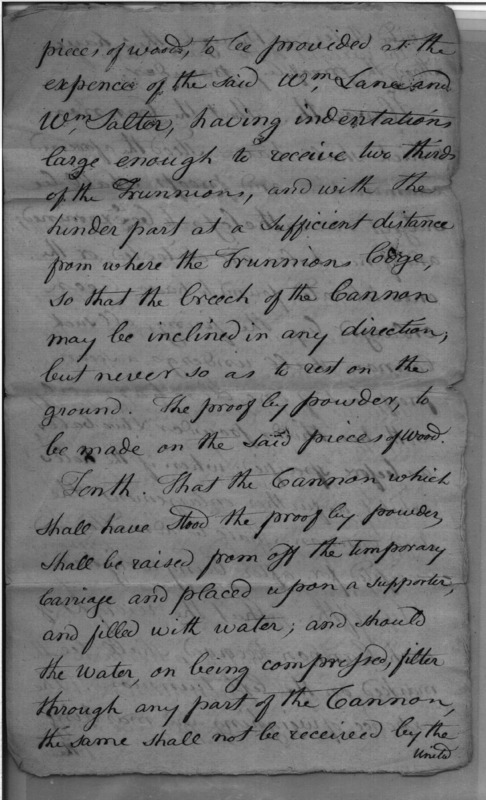 pieces of wood, to be provided at the
expence of the said Wm, Lane and
Wm, Salter, having indentations
large enough to receive two thirds
of the Trunnions, and with the
hinder part at a sufficient distance
from where the Trunnions lodge,
so that the breech of the Cannon
may be inclined in any direction,
but never so as to rest on the
ground. The proof by powder, to
be made on the said pieces of wood.
Tenth. That the Cannon which
shall have stood the proof by powder,
shall be raised from off the temporary
Carriage and placed upon a supporter,
and filled with water; and should
the water, on being compressed, filter
through any part of the Cannon,
the same shall not be received by the
United